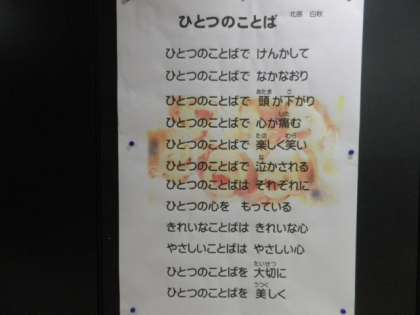 ひとつのことば
北原 白秋
ひとつのことばで けんかして
ひとつのことばで なかなおり
ひとつのことばで 頭が下がり
ひとつのことばで 心が痛む
ひとつのことばで 楽しく笑い
ひとつのことばで 泣かされる
ひとつのことばは それぞれに
ひとつの心を もっている
きれいなことばは きれいな心
やさしいことばは やさしい心
ひとつのことばを 大切に
ひとつのことばを 美しく